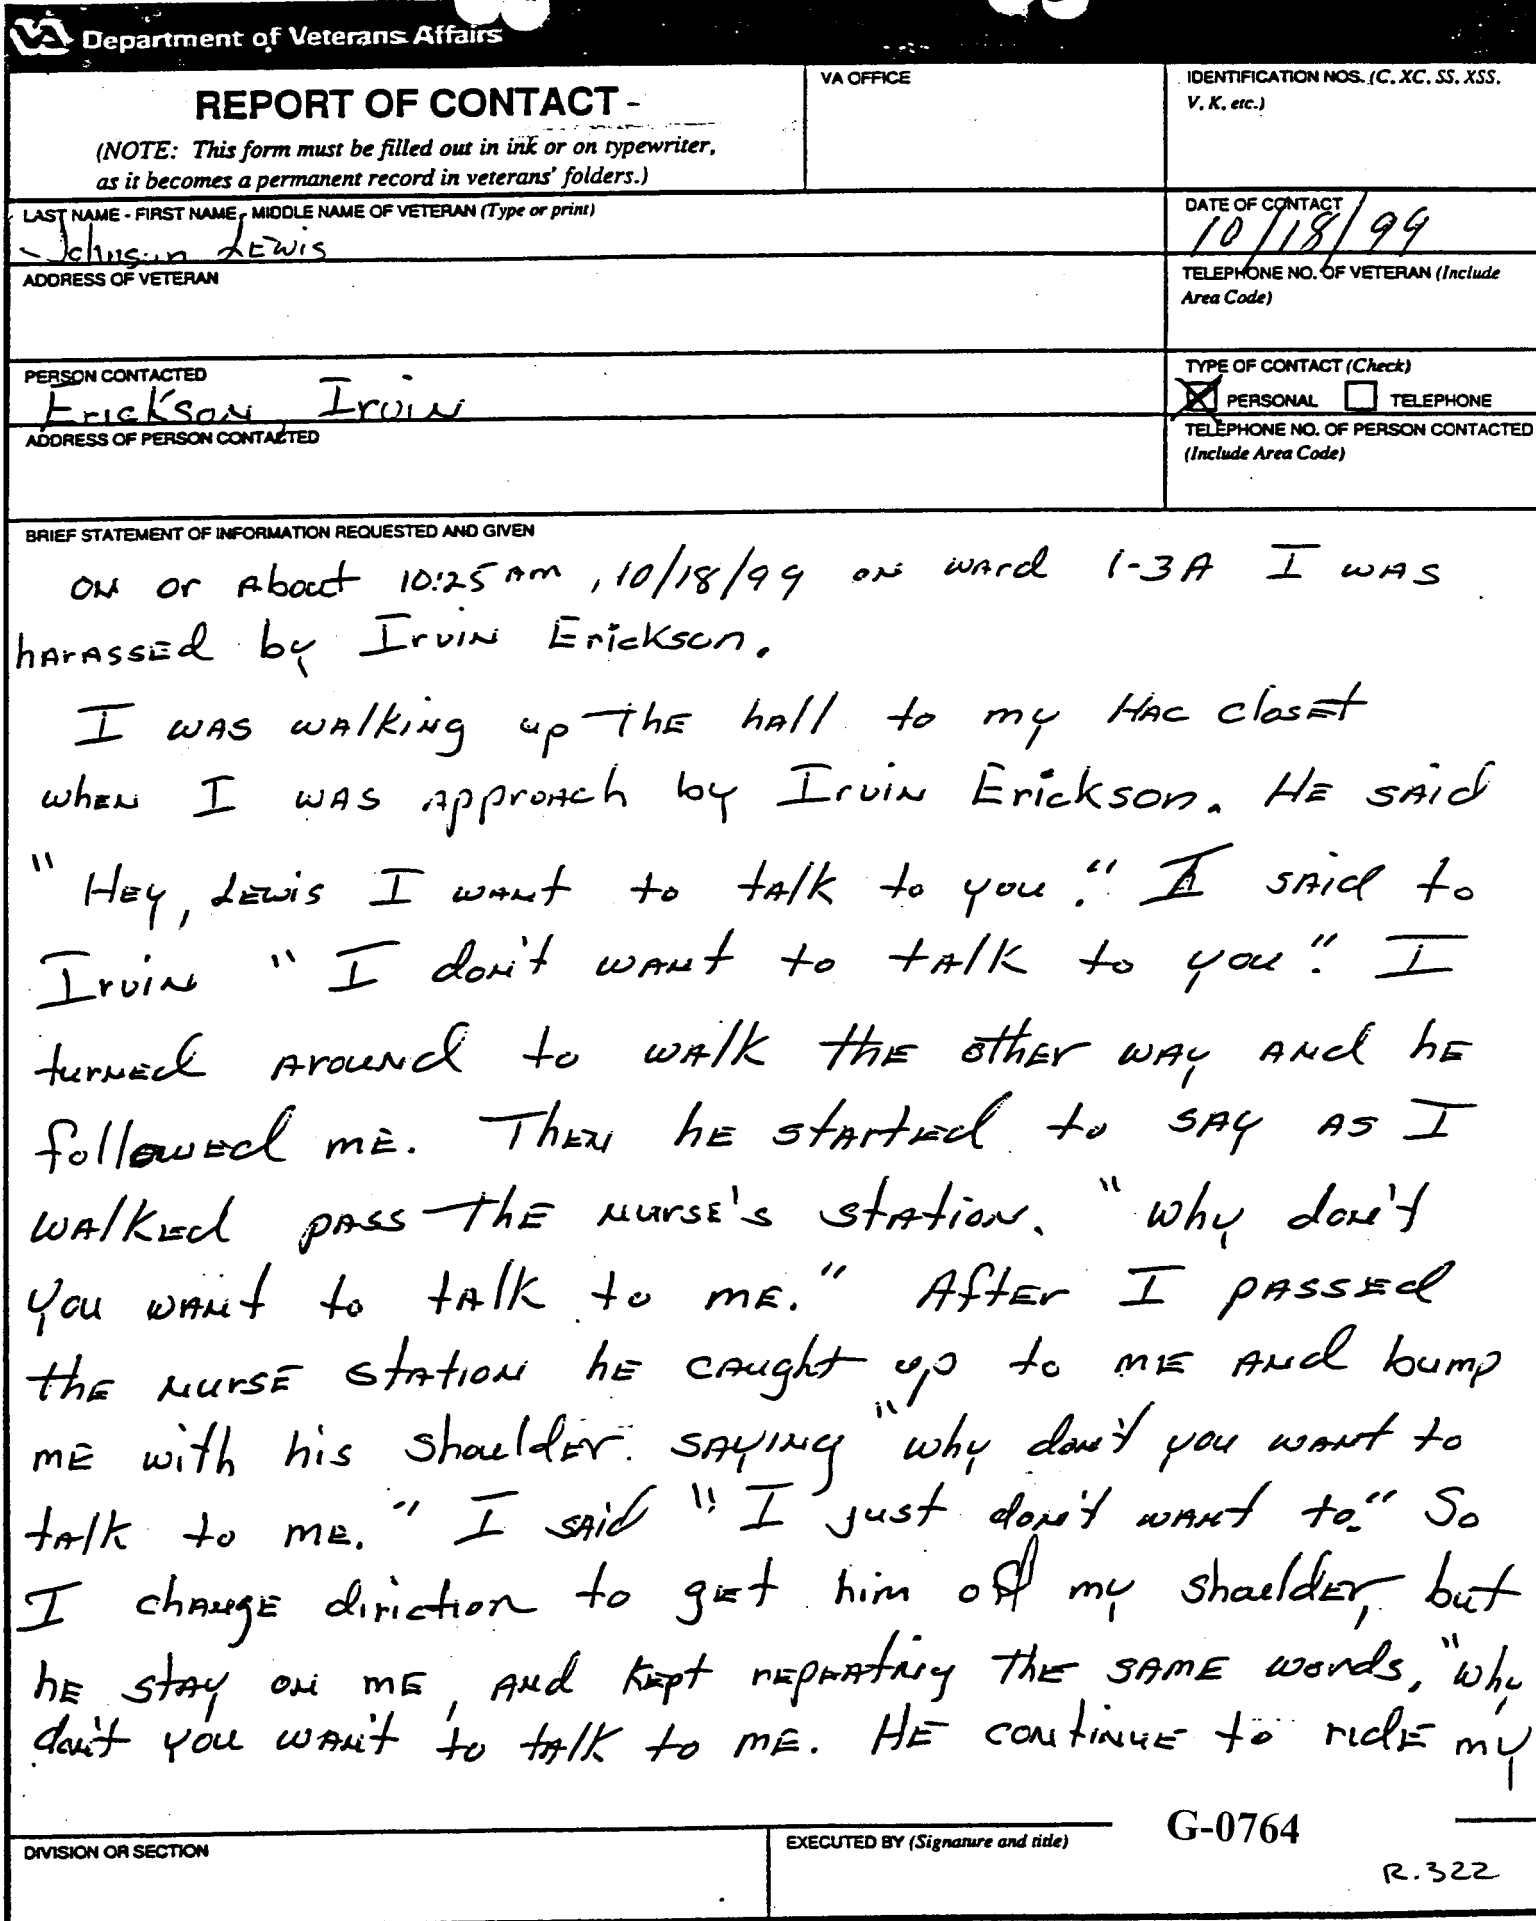 VA Department of Veterans Affairs
REPORT OF CONTACT -
(NOTE: This form must be filled out in ink or on typewriter,
as it becomes a permanent record in veterans' folders.)
VA OFFICE
IDENTIFICATION NOS. (C, XC, SS, XSS,
V, K, etc.)
LAST NAME - FIRST NAME - MIDDLE NAME OF VETERAN (Type or print)
Johnson Lewis
DATE OF CONTACT
10/18/99
ADDRESS OF VETERAN
TELEPHONE NO. OF VETERAN (Include
Area Code)
PERSON CONTACTED
Erickson, Irvin
TYPE OF CONTACT (Check)
PERSONAL TELEPHONE
ADDRESS OF PERSON CONTACTED
TELEPHONE NO. OF PERSON CONTACTED
(Include Area Code)
BRIEF STATEMENT OF INFORMATION REQUESTED AND GIVEN
on or About 10:25 Am, 10/18/99 on ward 1-3A I was
harassed by Irvin Erickson.
I was walking up the hall to my Hac closet
when I was approach by Irvin Erickson. He said
"Hey, Lewis I want to talk to you." I said to
Irvin "I don't want to talk to you". I
turned around to walk the other way and he
followed me. Then he started to say as I
walked pass the nurse's station. "why don't
you want to talk to me." After I passed
the nurse station he caught up to me and bump
me with his shoulder. saying "why don't you want to
talk to me." I said "I just don't want to." So
I change diriction to get him off my shoulder, but
he stay on me, and kept repeating the same words, "why
don't you wan't to talk to me. He continue to ride my
DIVISION OR SECTION
EXECUTED BY (Signature and title)
G-0764
R.322